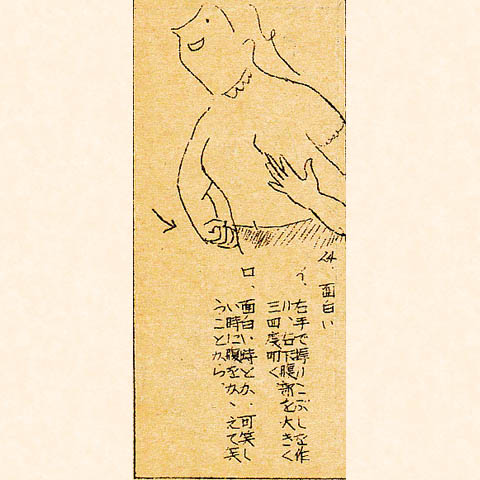 4、面白い
イ、右手で握りこぶしを作
り、右下腹部を大きく
三四度叩く
ロ、面白い時とか、可笑し
い時に腹をかゝえて笑
うことから、